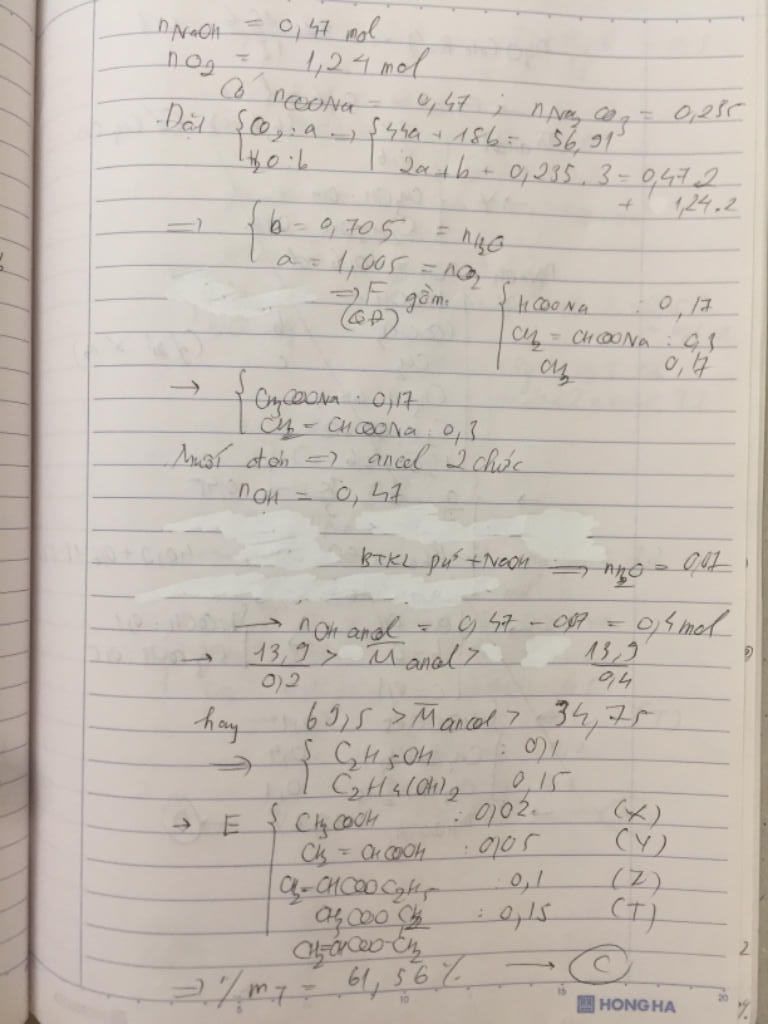 nNaOH = 0,47 mol
nO2 = 1,24 mol
Có nCOONa = 0,47 ; nNa2CO3 = 0,235
Đặt { CO2 : a → { 44a + 18b = 56,91
H2O : b 2a + b + 0,235 . 3 = 0,47.2
+ 1,24.2
=> { b = 0,705 = nH2O
a = 1,005 = nCO2
=> F gồm { HCOONa : 0,17
(GĐ) CH2 = CHCOONa : 0,3
CH2 0,17
→ { CH3COONa : 0,17
CH2 = CHCOONa : 0,3
Muối đơn => ancol 2 chức
nOH = 0,47
BTKL pứ + NaOH => nH2O = 0,07
→ nOH ancol = 0,47 - 0,07 = 0,4 mol
→ 13,9/0,2 > M̅ ancol > 13,9/0,4
hay 69,5 > M̅ ancol > 34,75
=> { C2H5OH : 0,1
C2H4(OH)2 0,15
→ E { CH3COOH : 0,02 (X)
CH2 = CHCOOH : 0,05 (Y)
CH2=CHCOOC2H5 : 0,1 (Z)
CH3COO CH2 : 0,15 (T)
CH2=CHCOO-CH2
=> % mT = 61,56 % → C
5 10 15 20
HONG HA